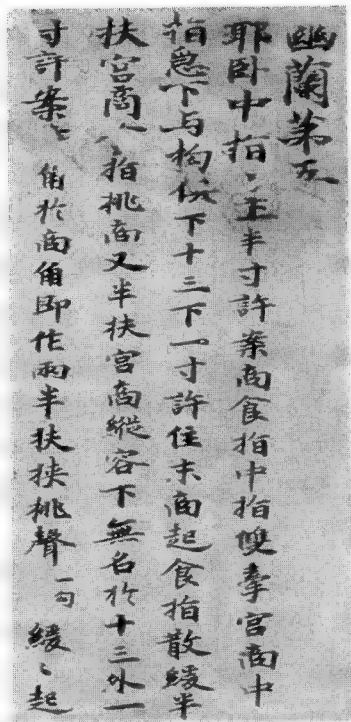 幽蘭第五
耶卧中指上半寸許案商食指中指雙牽宮商中
指急下与拘俱下十三下一寸許住末商起食指散緩半
扶宮商指挑商又半扶宮商縱容下無名於十三外一
寸許案角於商角即作兩半扶挾挑聲一句緩〻起